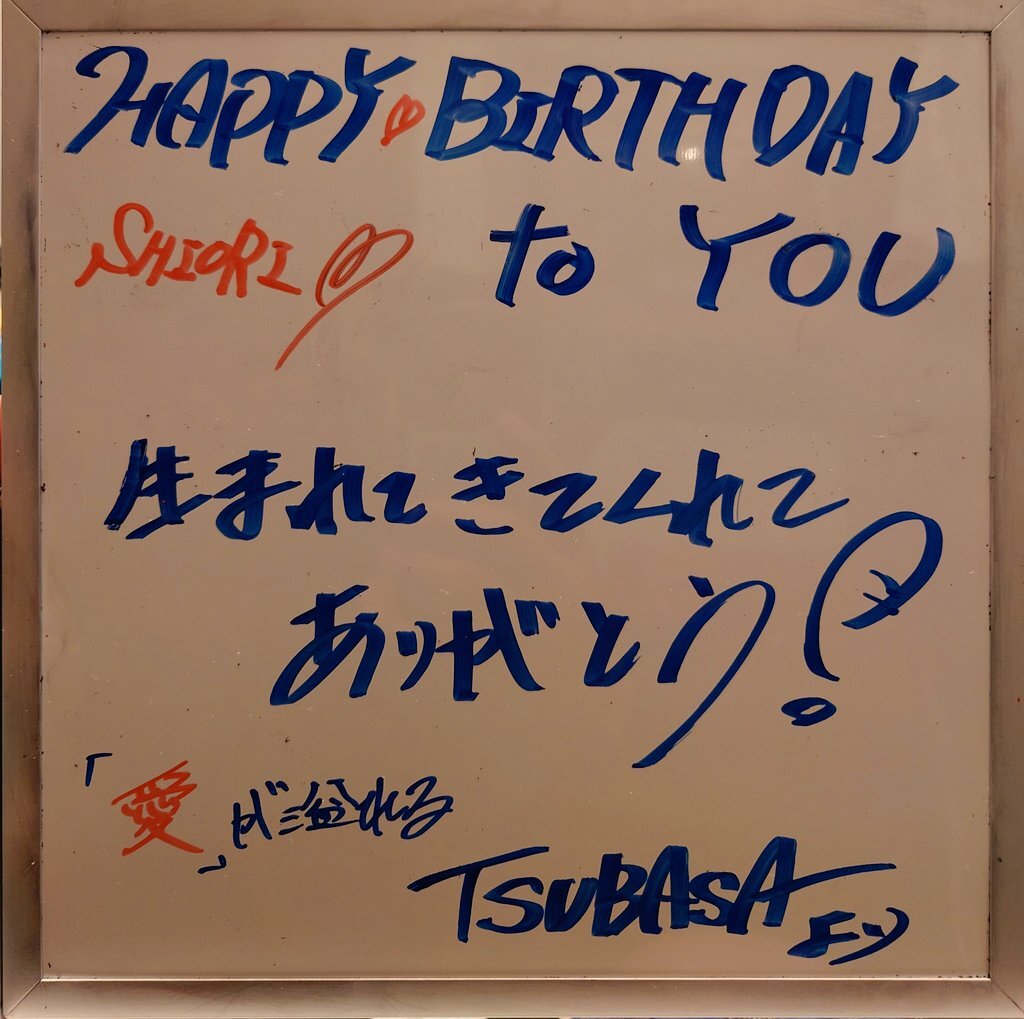 HAPPY♥BIRTHDAY
SHIORI♡ to YOU
生まれてきてくれて
ありがとう!
「愛」が溢れる
TSUBASAより